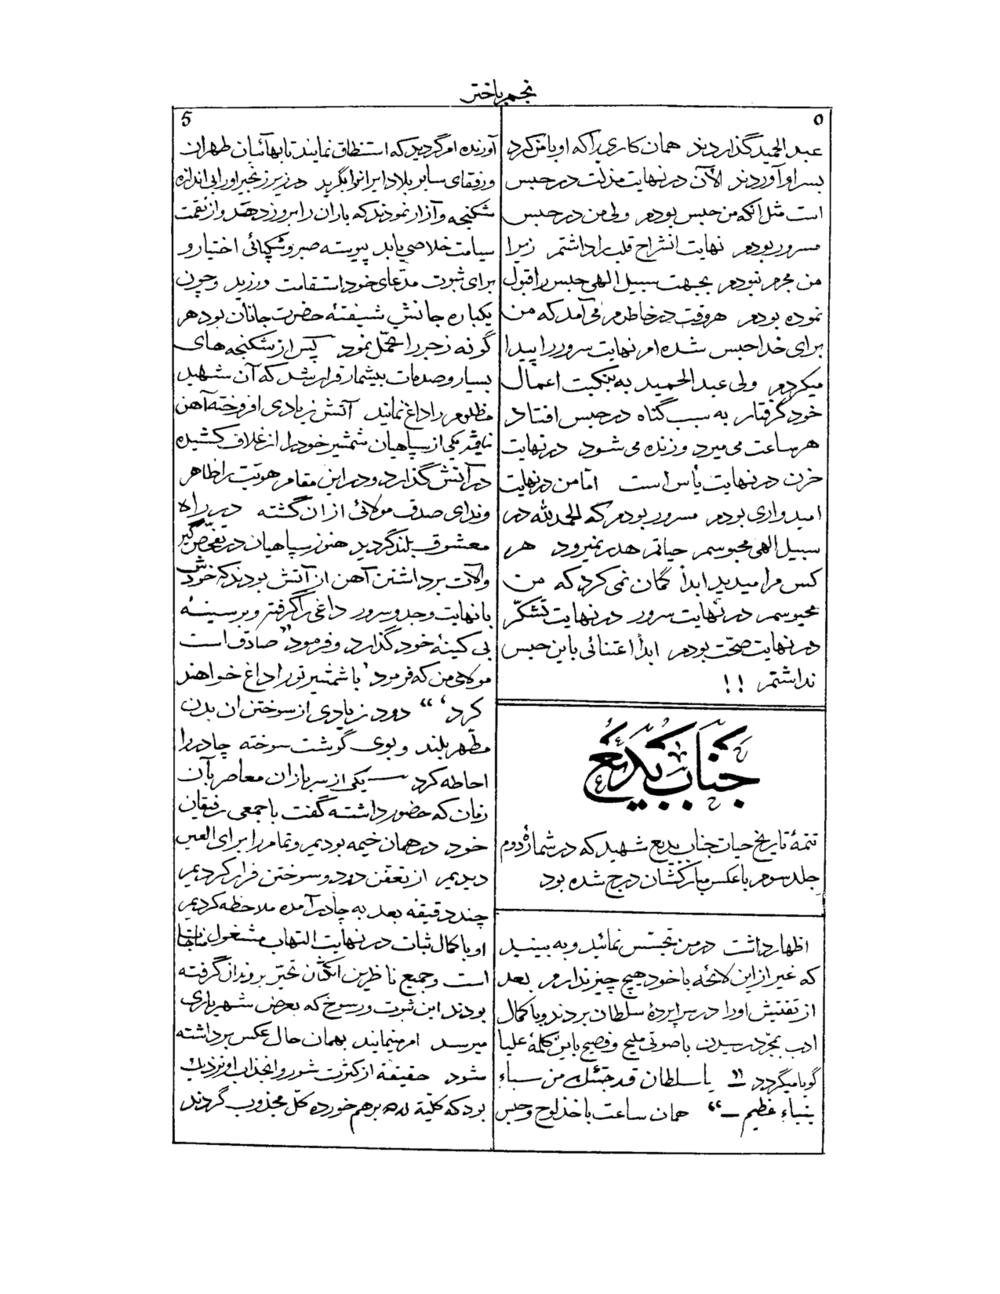 نجم باختر
۵
5
عبدالحمید گذاردند همان کاری را که او با من کرد
بسر او آوردند الآن در نهایت مذلت در حبس
است مثل انکه من حبس بودم ولی من در حبس
مسرور بودم نهایت انشراح قلب را داشتم زیرا
من مجرم نبودم بجهت سبیل الهی حبس را قبول
نموده بودم هروقت در خاطرم می آمد که من
برای خدا حبس شده ام نهایت سرور را پیدا
میکردم ولی عبدالحمید به نکبت اعمال
خود گرفتار به سبب گناه در حبس افتاد
هر ساعت می میرد و زنده می شود در نهایت
حزن در نهایت یأس است امّا من در نهایت
امیدواری بودم مسرور بودم که الحمدلله در
سبیل الهی محبوسم حیاتم هدر نمیرود هر
کس مرا میدید ابداً گمان نمی کرد که من
محبوسم در نهایت سرور در نهایت تشکّر
در نهایت صحّت بودم ابداً اعتنائی باین حبس
نداشتم !!
جناب بدیع
تتمهٔ تاریخ حیات جناب بدیع شهید که در شمارهٔ دوم
جلد سوم با عکس مبارکشان درج شده بود
اظهار داشت در من تجسّس نمائید و به بینید
که غیر از این لائحه با خود هیچ چیز ندارم بعد
از تفتیش اورا در سراپردهٔ سلطان بردند و با کمال
ادب بمجرّد رسیدن با صوتی ملیح و فصیح باین کلمهٔ علیا
گویا میگردد „ یا سلطان قد جئتک من سباء
بنباء عظیم — “ همان ساعت باخذ لوح و حبس
آورنده امر گردید که استنطاق نمایند تا بهائیان طهران
و رفقای سایر بلاد ایرانرا بگیرند در زیر زنجیر اورا بی اندازه
شکنجه و آزار نمودند که یاران را بروز دهد و از نقمت
سیاست خلاصی یابد پیوسته صبر و شکیبائی اختیار و
برای ثبوت مدّعای خود استقامت ورزید و چون
یکباره جانش شیفتهٔ حضرت جانان بود هر
گونه زجر را تحمّل نمود پس از شکنجه های
بسیار و صدمات بیشمار قرار شد که آن شهید
مظلوم را داغ نمایند آتش زیادی افروخته آهن
یکی از سپاهیان شمشیر خود را از غلاف کشیده
در آتش گذارد و در این مقام هویّت را ظاهر
و ندای صدق مولائی از ان گشته در راه
معشوق بلند گردید هنوز سپاهیان در تفحّص گیر
و آلات برداشتن آهن از آتش بودند که خودش
با نهایت وجد و سرور داغی را گرفتم و بر سینهٔ
بی کینهٔ خود گذارد و فرمود „ صادق است
مولای من که فرمود ‘ با شمشیر تو را داغ خواهند
کرد ‘ “ دود زیادی از سوختن ان بدن
مطهر بلند و بوی گوشت سوخته چادر را
احاطه کرد — یکی از سربازان معاصر بآن
زمان که حضور داشته گفت با جمعی رفیقان
خود در همان خیمه بودیم و تمام را برای العین
دیدیم از تعفن دود و سوختن فرار کردیم
چند دقیقه بعد به چادر آمده ملاحظه کردیم
او با کمال ثبات در نهایت التهاب مشغول مناجات
است و جمیع ناظرین انگشت تحیّر بر دندان گرفته
بودند این ثبوت و رسوخ که بعرض شهریاری
میرسد امر مینمایند بهمان حال عکس برداشته
شود حقیقةً از کثرت شور و انجذاب او نزدیک
بود که کلّیهٔ اردو برهم خورده کلّ مجذوب گردند